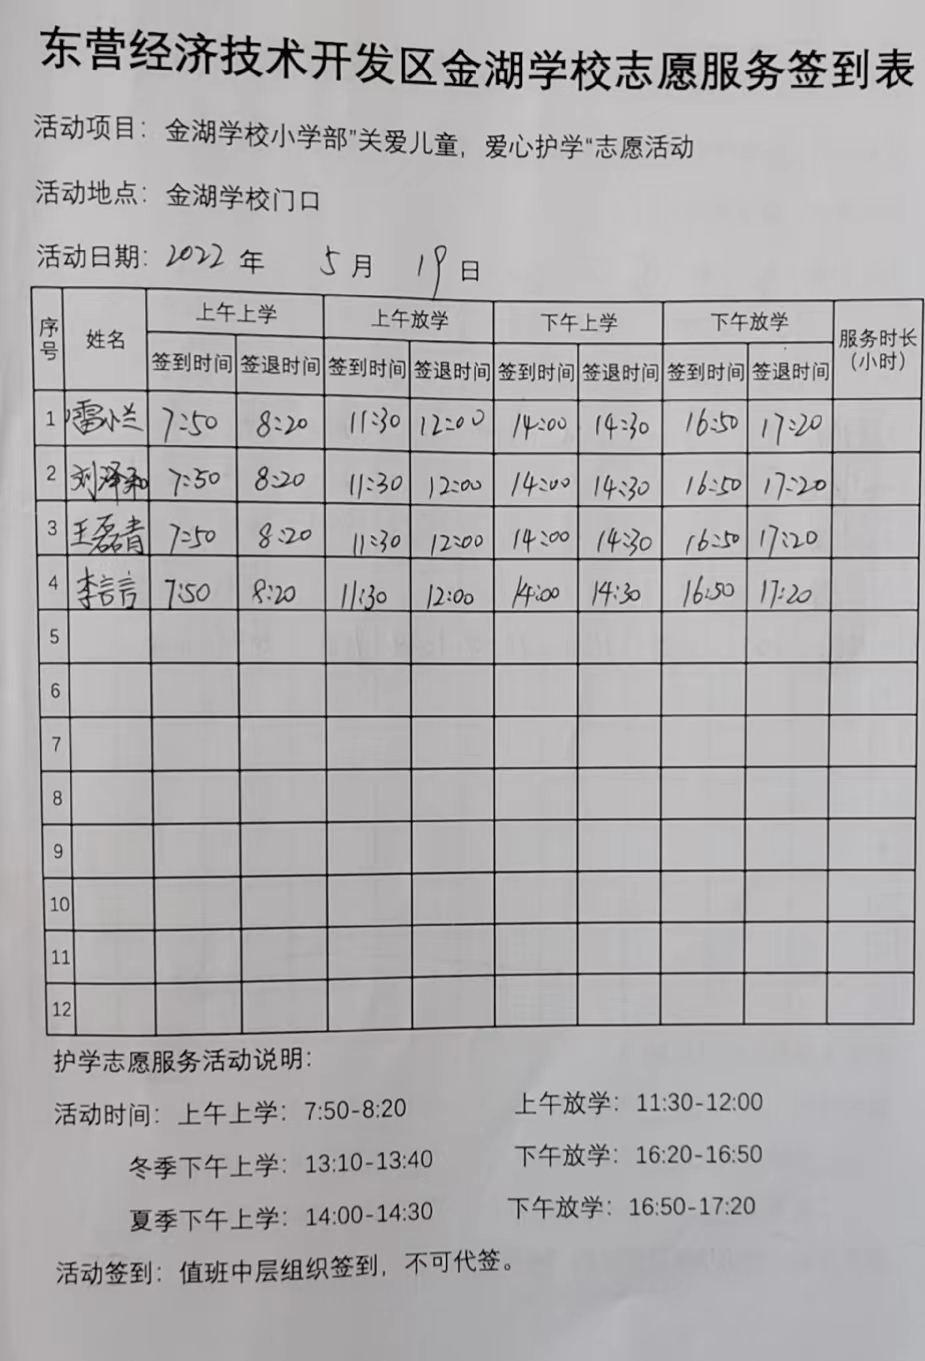 东营经济技术开发区金湖学校志愿服务签到表
活动项目：金湖学校小学部"关爱儿童，爱心护学"志愿活动
活动地点：金湖学校门口
活动日期：2022 年 5 月 19 日
序号 姓名 上午上学 上午放学 下午上学 下午放学 服务时长（小时）
签到时间 签退时间 签到时间 签退时间 签到时间 签退时间 签到时间 签退时间
1 雷小兰 7:50 8:20 11:30 12:00 14:00 14:30 16:50 17:20
2 刘泽和 7:50 8:20 11:30 12:00 14:00 14:30 16:50 17:20
3 王磊青 7:50 8:20 11:30 12:00 14:00 14:30 16:50 17:20
4 李言言 7:50 8:20 11:30 12:00 14:00 14:30 16:50 17:20
5
6
7
8
9
10
11
12
护学志愿服务活动说明：
活动时间：上午上学：7:50-8:20 上午放学：11:30-12:00
冬季下午上学：13:10-13:40 下午放学：16:20-16:50
夏季下午上学：14:00-14:30 下午放学：16:50-17:20
活动签到：值班中层组织签到，不可代签。